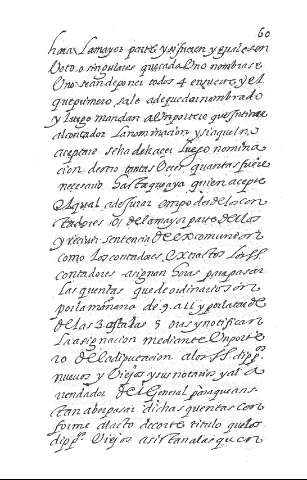 60
hara La mayor parte y si fueren yguales en
Voto, o singulares que cada Uno nombrase
Uno sean de poner todos 4 en suerte y el
que primero sale a de quedar nombrado
y luego mandan a Un portero que
al contador La nominacion y si aquel no
aceptare se ha de hacer luego nomina
cion de otro tantas Veces quantas fuere
necesario hasta que aya quien acepte
el qual a de jurar en poder de los con
tadores, o de la mayor parte dellos
y recivir sentencia de excomunion
como los contadores, extractos Los
contadores asignan horas para pasar
Las quentas que de ordinario son
por la mañana de 9. a 11 y por la tarde
de las 3 asta las 5 oras y notifican
La asignacion mediante Un porte
ro de la diputacion a los SS. dipp.
nuevos y Viejos y sus notarios y al a
rrendador del General para que ans
tan a ber pasar dichas quentas con
forme al acto de corte titulo que los
dipp. Viejos asistan a las quen